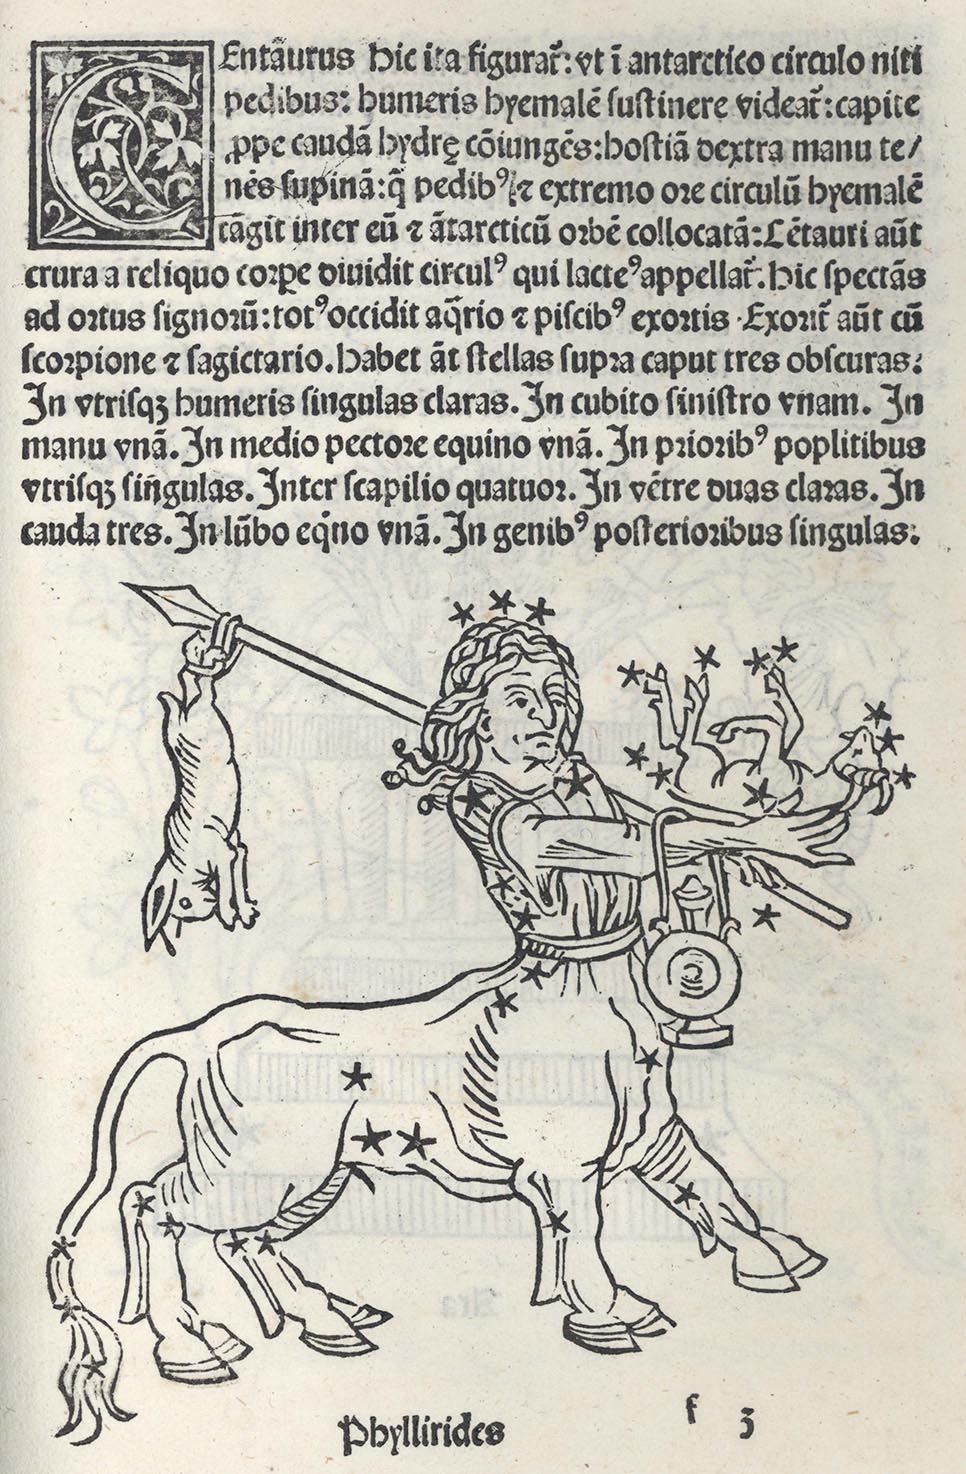 CEntãurus Hic ita figurat̃: vt ĩ antarctico circulo niti
pedibus: humeris hyemalẽ sustinere videat̃: capite
ꝓppe caudã hydrę cõiungẽs: hostiã dextra manu te/
nẽs supinã: q̃ pedibꝰ ⁊ extremo ore circulũ hyemalẽ
tãgit inter eũ ⁊ ãtarcticũ orbẽ collocatã: Cẽtauri aũt
crura a reliquo corꝑe diuidit circulꝰ qui lacteꝰ appellat̃. Hic spectãs
ad ortus signorũ: totꝰ occidit aq̃rio ⁊ piscibꝰ exortis. Exorit̃ aũt cũ
scorpione ⁊ sagictario. Habet ãt stellas supra caput tres obscuras:
In vtrisqꝫ humeris singulas claras. In cubito sinistro vnam. In
manu vnã. In medio pectore equino vnã. In prioribꝰ poplitibus
vtrisqꝫ singulas. Inter scapilio quatuor. In vẽtre duas claras. In
cauda tres. In lũbo eq̇no vnã. In genibꝰ posterioribus singulas:
Phyllirides
f 3